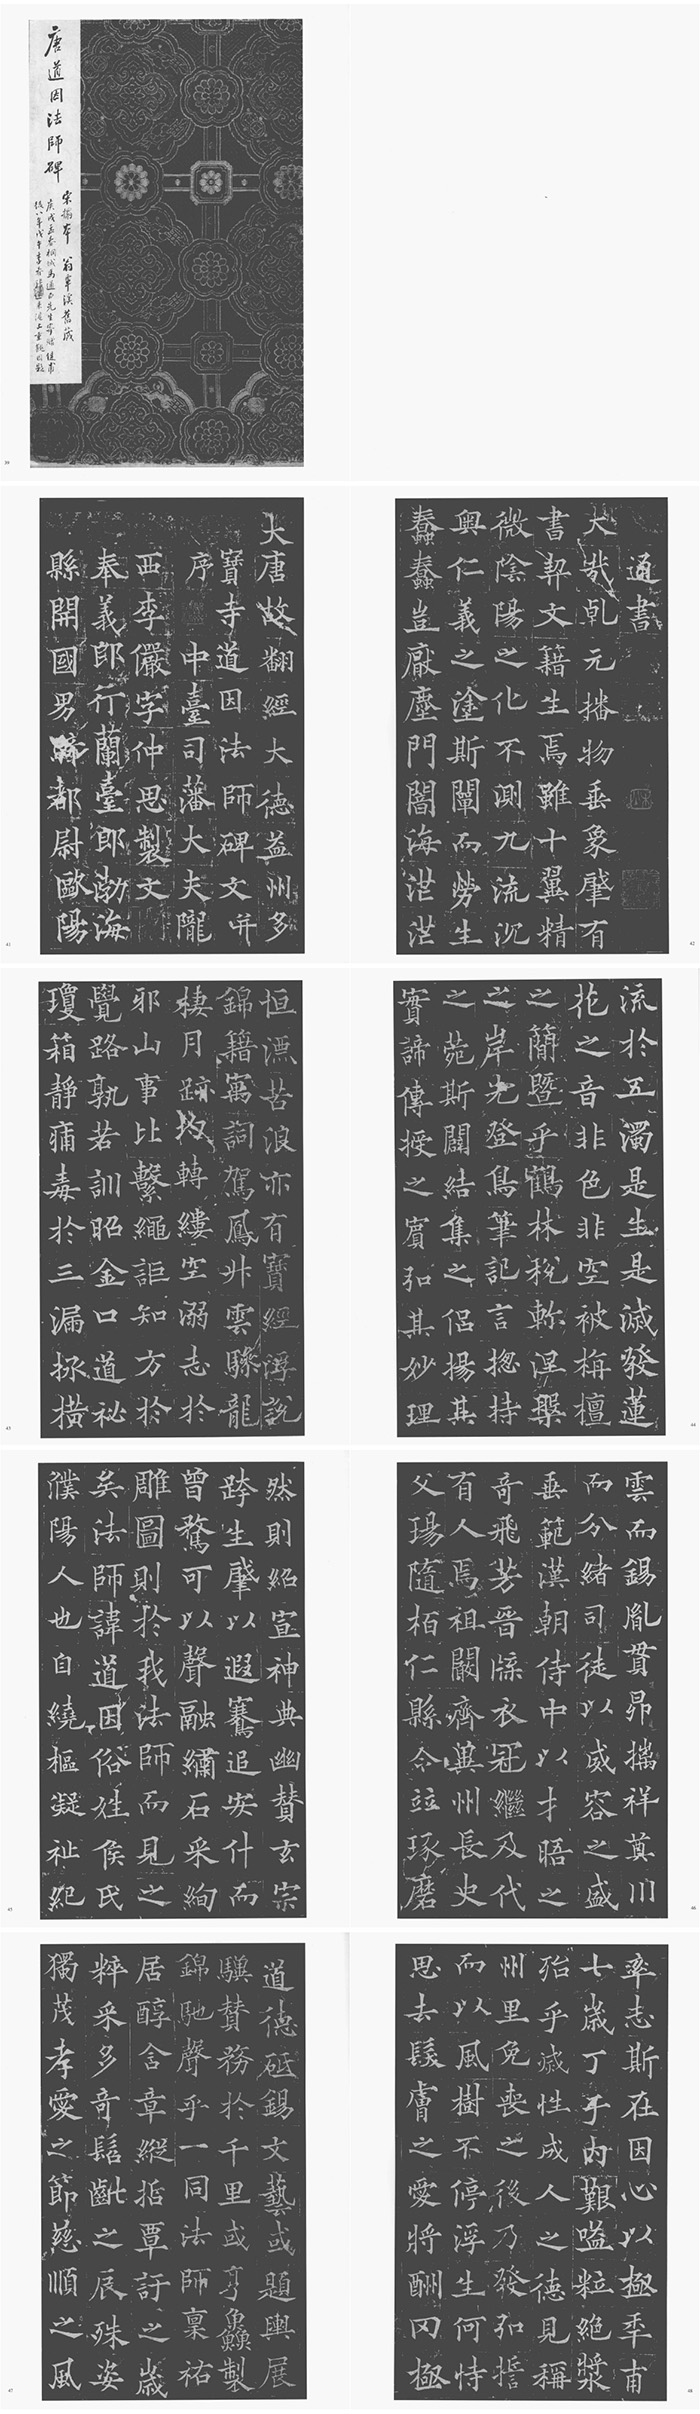 唐道因法師碑
宋搨本 翁覃溪舊藏
39
大唐故翻經大德益州多
寶寺道因法師碑文并
序 中臺司藩大夫隴
西李儼字仲思製文
奉義郎行蘭臺郎渤海
縣開國男騎都尉歐陽
41
通書
大哉乹元播物垂象肇有
書契文籍生焉雖十翼精
微陰陽之化不測九流沉
奥仁義之塗斯闡而勞生
蠢蠢豈厭塵門闇海茫茫
42
恒漂苦浪亦有寶經浮說
錦籍寓詞駕鳳升雲驂龍
棲月跡均轉縷空溺志於
邪山事比繫繩詎知方於
覺路孰若訓昭金口道祕
瓊箱靜痡毒於三漏拯橫
43
流於五濁是生是滅發蓮
花之音非色非空被栴檀
之簡暨乎鶴林稅軫涅槃
之岸先登鳥筆記言揔持
之菀斯闢結集之侶揚其
實諦傳授之賓弘其妙理
44
然則紹宣神典幽贊玄宗
跨生肇以遐騫追安什而
曾騖可以聲融繡石采絢
雕圖則於我法師而見之
矣法師諱道因俗姓侯氏
濮陽人也自繞樞凝祉紀
45
雲而錫胤貫昴摛祥奠川
而分緒司徒以威容之盛
垂範漢朝侍中以才晤之
奇飛芳晉牒衣冠繼及代
有人焉祖闞齊冀州長史
父瑒隨栢仁縣令竝琢磨
46
道德砥錫文藝或題輿展
驥贊務於千里或亨鱻製
錦馳聲乎一同法師稟祐
居醇含章縱哲覃訏之歲
粹采多奇髫齔之辰殊姿
獨茂孝愛之節慈順之風
47
率志斯在因心以極年甫
七歲丁乎內艱嗌粒絕漿
殆乎滅性成人之德見稱
州里免喪之後乃發弘誓
而以風樹不停浮生何恃
思去髮膚之愛將酬罔極
48